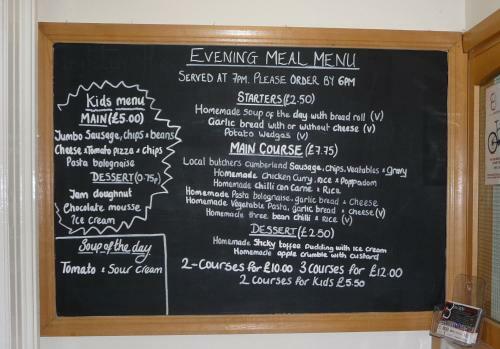 EVENING MEAL MENU
SERVED AT 7PM. PLEASE ORDER BY 6PM
STARTERS (£2.50)
Homemade soup of the day with bread roll (V)
Garlic bread with or without cheese (V)
Potato wedgas (V)
MAIN COURSE (£7.75)
Local butchers cumberland Sausage, Chips, Veatables & Gravy
Homemade Chicken Curry, Rice & Poppadom
Homemade chilli con Carne & Rice
Homemade Pasta bolognaise, garlic bread & Cheese
Homemade Vegetable Pasta, garlic bread & cheese (V)
Homemade three bean chilli & Rice (V)
DESSERT (£2.50)
Homemade Sticky toffee pudding with ice cream
Homemade apple crumble with custard
2-Courses for £10.00 3 courses for £12.00
2 courses for Kids £5.50
Kids menu
MAIN (£5.00)
Jumbo Sausage, chips & beans
Cheese & Tomato pizza & chips
Pasta bolognaise
DESSERT (0.75p)
Jam doughnut
Chocolate mousse
Ice cream
Soup of the day
Tomato & Sour cream